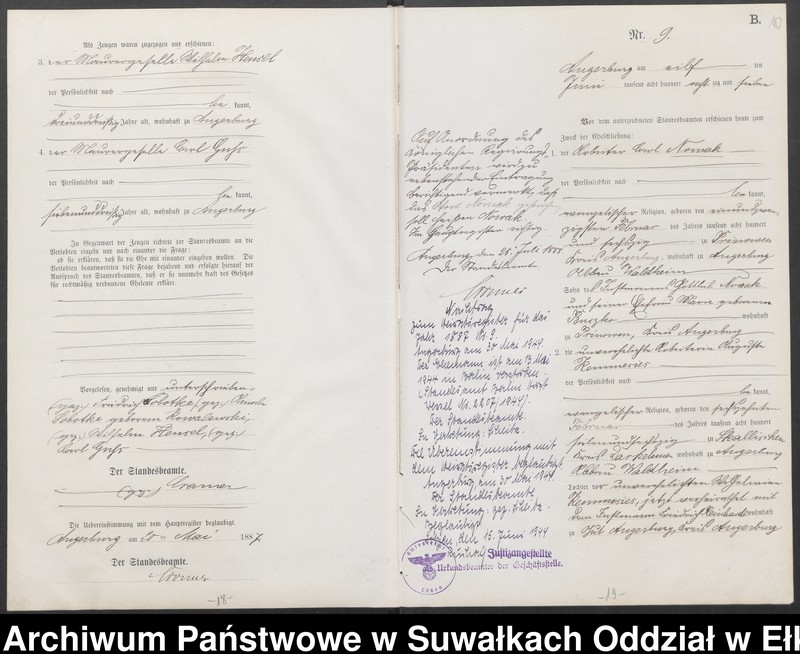 Als Zeugen waren zugezogen und erschienen:
3. der Maurergeselle Wilhelm Hensel
der Persönlichkeit nach
be kannt,
Jahre alt, wohnhaft zu Angerburg
4. der Maurergeselle Carl
der Persönlichkeit nach
be kannt,
siebenunddreißig Jahre alt, wohnhaft zu Angerburg
In Gegenwart der Zeugen richtete der Standesbeamte an die
Verlobten einzeln und nach einander die Frage:
ob sie erklären, daß sie die Ehe mit einander eingehen wollen. Die
Verlobten beantworteten diese Frage bejahend und erfolgte hierauf der
Ausspruch des Standesbeamten, daß er sie nunmehr kraft des Gesetzes
für rechtmäßig verbundene Eheleute erkläre.
Vorgelesen, genehmigt und unterschrieben.
(gez.) Friedrich Sobottka, (gez.)
Sobottka geborene Kowalewski,
(gez.) Wilhelm Hensel, (gez.)
Carl
Der Standesbeamte.
(gez.) Cramer
Die Uebereinstimmung mit dem Hauptregister beglaubigt.
Angerburg am Mai 1887.
Der Standesbeamte.
Cramer
-18-
B.
10
Nr. 9.
Angerburg am elf ten
Juni tausend acht hundert achtzig und sieben
Vor dem unterzeichneten Standesbeamten erschienen heute zum
Zweck der Eheschließung:
1. der Arbeiter Carl Nowak
der Persönlichkeit nach
be kannt,
evangelischer Religion, geboren den
zigsten des Jahres tausend acht hundert
und sechszig zu Prinowen
Kreis Angerburg, wohnhaft zu Angerburg
Abbau Waldheim
Sohn des Instmanns Gottlieb Nowak
und seiner Ehefrau Marie geborenen
wohnhaft
zu Prinowen, Kreis Angerburg
2. die unverehelichte Arbeiterin Auguste
Kemmesies
der Persönlichkeit nach
be kannt,
evangelischer Religion, geboren den sechszehnten
Februar des Jahres tausend acht hundert
siebenundsechszig zu Skallischen
Kreis Darkehmen wohnhaft zu Angerburg
Abbau Waldheim
Tochter der unverehelichten Wilhelmine
Kemmesies, jetzt verheirathet mit
dem Instmann Friedrich wohnhaft
zu Gut Angerburg, Kreis Angerburg
Auf Anordnung des
Königlichen Regierungs-
Präsidenten wird zu
nebenstehender Eintragung
berichtigend vermerkt, daß
soll heißen Nowak
Im Hauptregister richtig.
Angerburg, den 28. Juli
Der Standesbeamte.
Cramer
Nachtrag
zum Heiratsregister für das
Jahr 1887 Nr. 9.
Angerburg am 30. Mai 1944.
Der Ehemann ist am 13. Mai
1944 in Berlin verstorben.
(Standesamt Berlin
Nr. 2257/1944).
Der Standesbeamte
In Vertretung:
Die Uebereinstimmung mit
dem Heiratsregister beglaubigt.
Angerburg am 30. Mai 1944.
Der Standesbeamte
In Vertretung: gez.
Beglaubigt
den 15. Juni 1944
Justizangestellte
als Urkundsbeamter der Geschäftsstelle.
-19-
Archiwum Państwowe w Suwałkach Oddział w Ełk